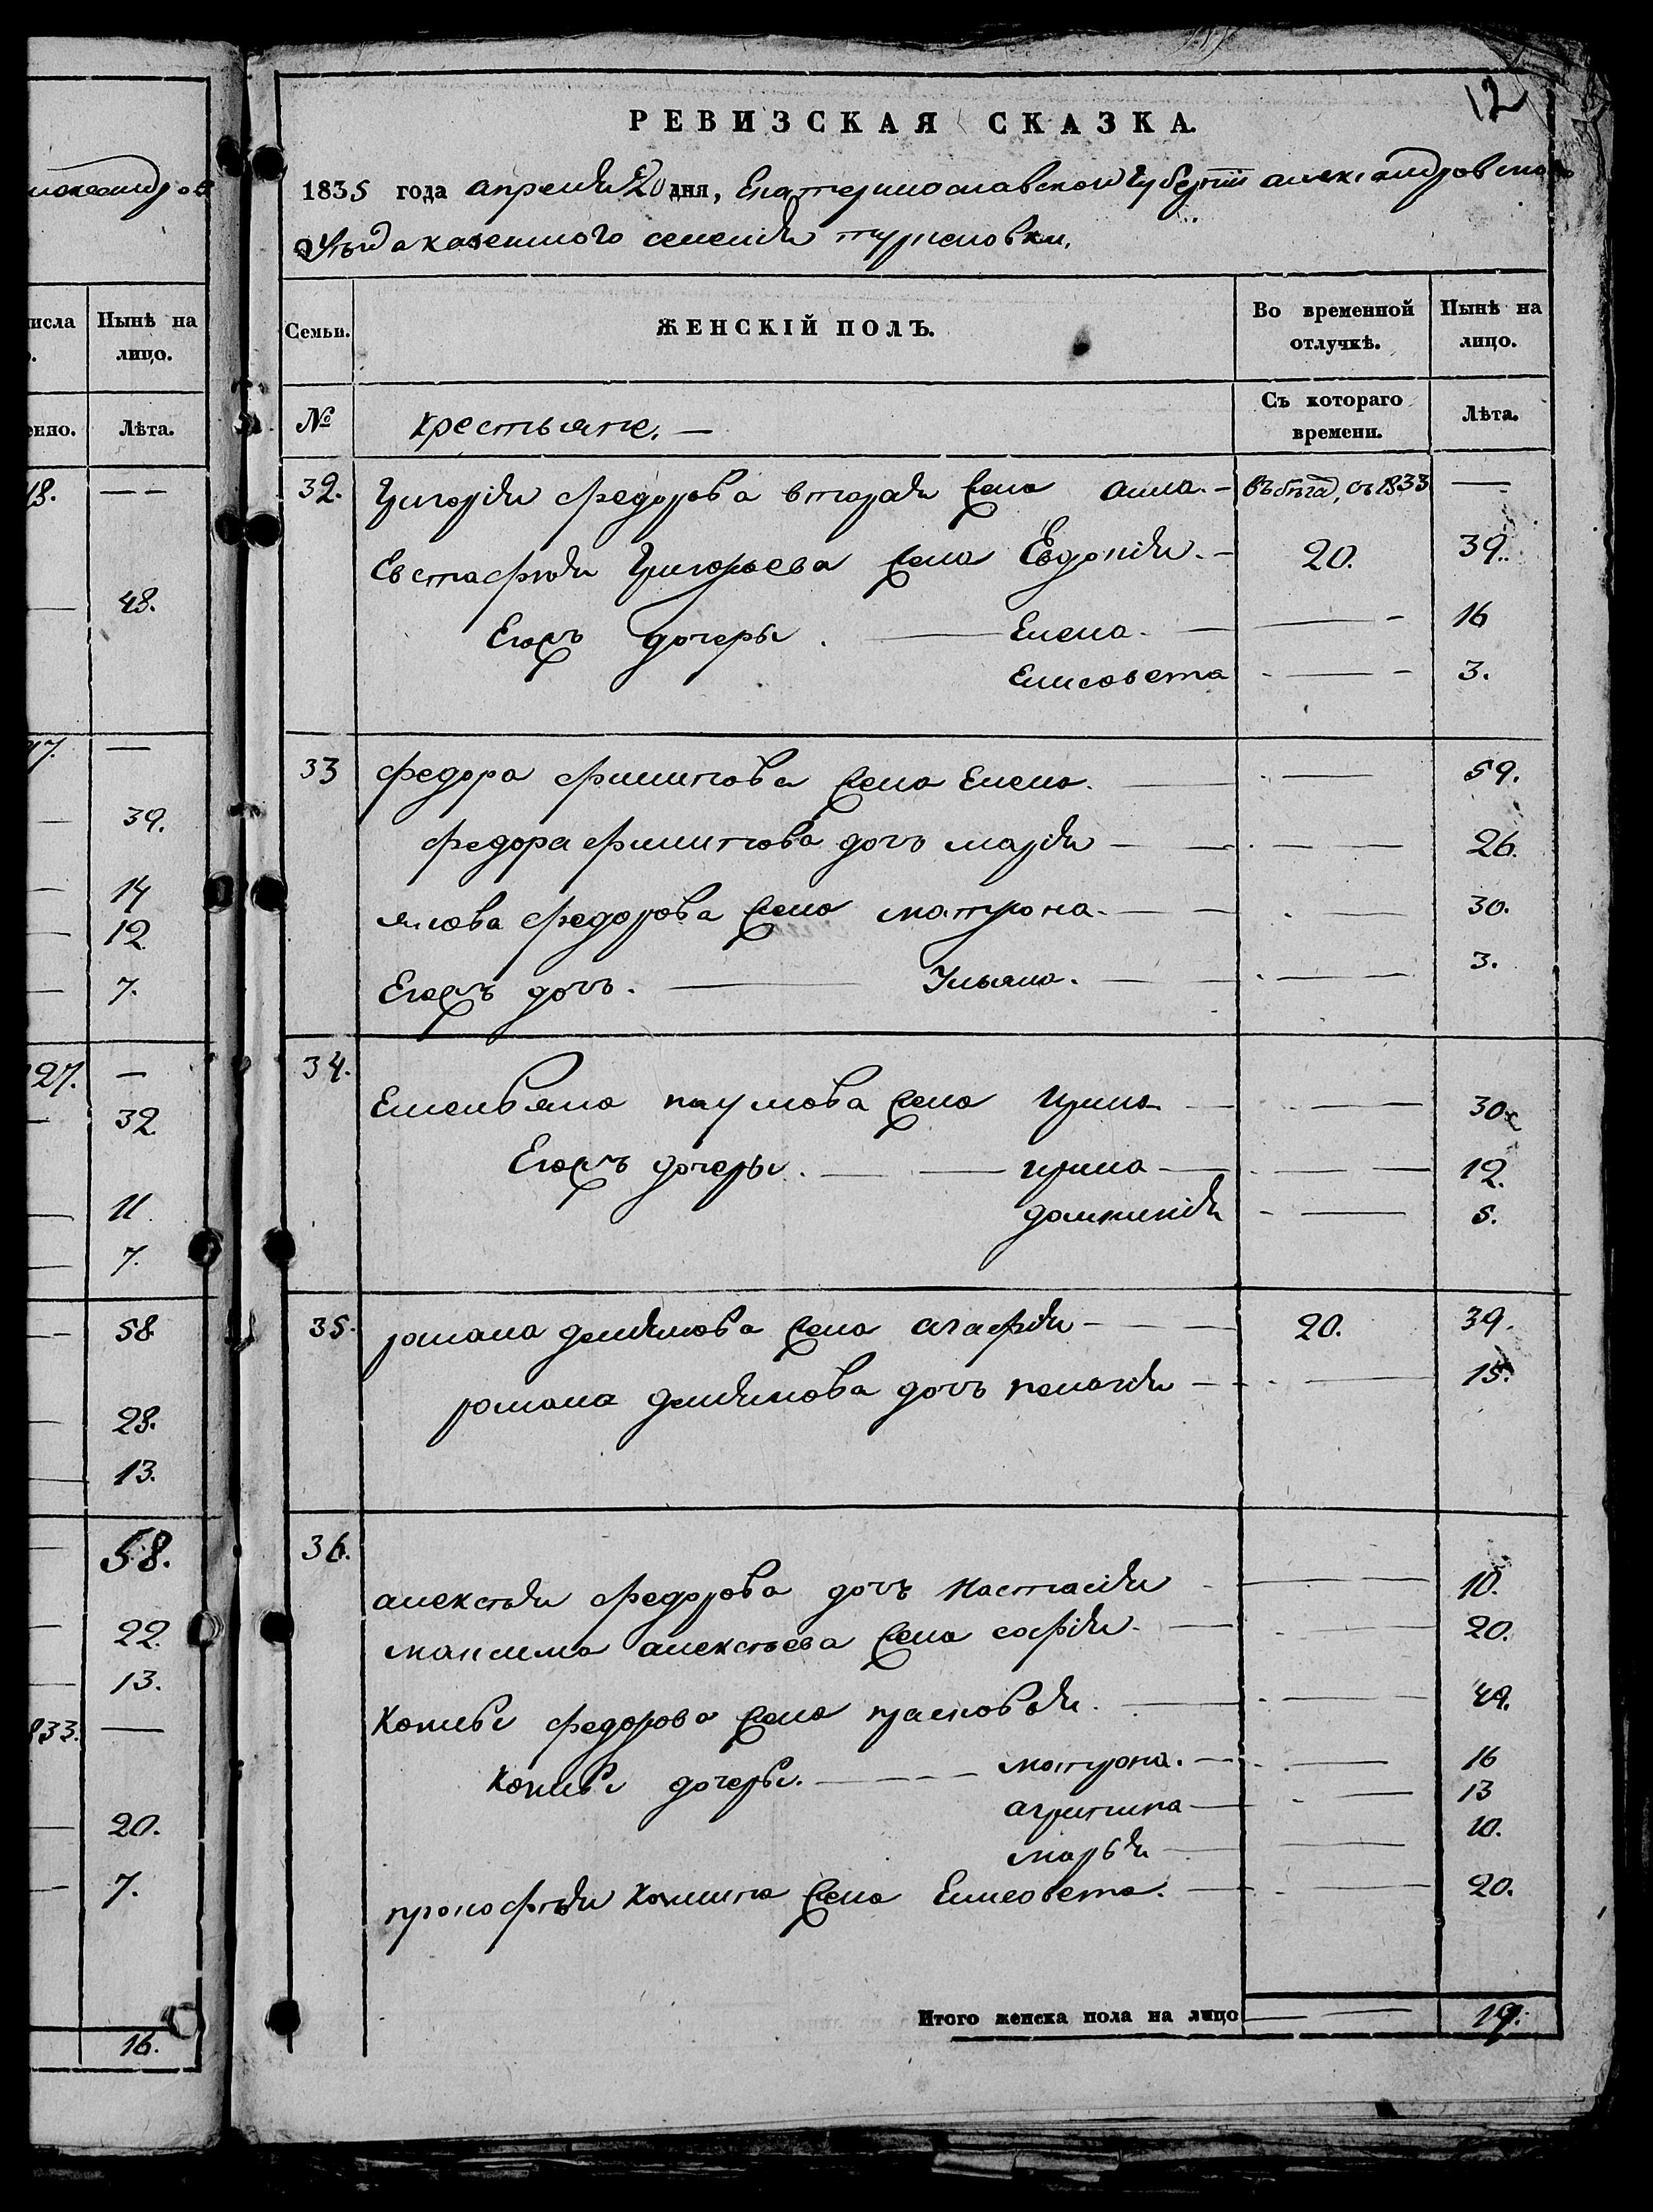 александров
числа
Нынѣ на
лицо.
Лѣта.
18.
— —
48.
—
39.
14
12
7.
27.
—
32
11
7.
58
28.
13.
58.
22.
13.
833.
—
20.
7.
16.
12
РЕВИЗСКАЯ СКАЗКА.
1835 года апреля 20 дня, Екатеринославской губерніи александровскаго
уѣзда казенного селенія туркеновки.
Семьи.
ЖЕНСКІЙ ПОЛЪ.
Во временной отлучкѣ.
Нынѣ на лицо.
№
крестьяне. —
Съ котораго времени.
Лѣта.
32. Григорія Федорова вторая жена анна. — въ бѣгах, съ 1833 —
Евстафія Григорьева жена Евдокія. — 20. 39.
Егожъ дочеры. — Елена. — — 16
Елисовета — 3.
33 Федора Филипова жена Елена. — — 59.
Федора Филипова дочь марія — — 26.
якова Федорова жена матрона. — — 30.
Егожъ дочь. — Ульяна. — — 3.
34. Емельяна наумова жена Ирина — — 30
Егожъ дочеры. — ирина — — 12.
домникія — 5.
35. романа демянова жена агафія — 20. 39.
романа демянова дочь пелагія — — 15.
36. алексѣя Федорова дочь Настасія — — 10.
максима алексѣева жена софія. — — 20.
Конъы Федорова жена прасковья. — — 49.
Конъы дочеры. — матрона. — — 16
агрипина — — 13
марья — — 10.
прокофѣя Конина жена Елисовета. — — 20.
Итого женска пола на лицо — 19.